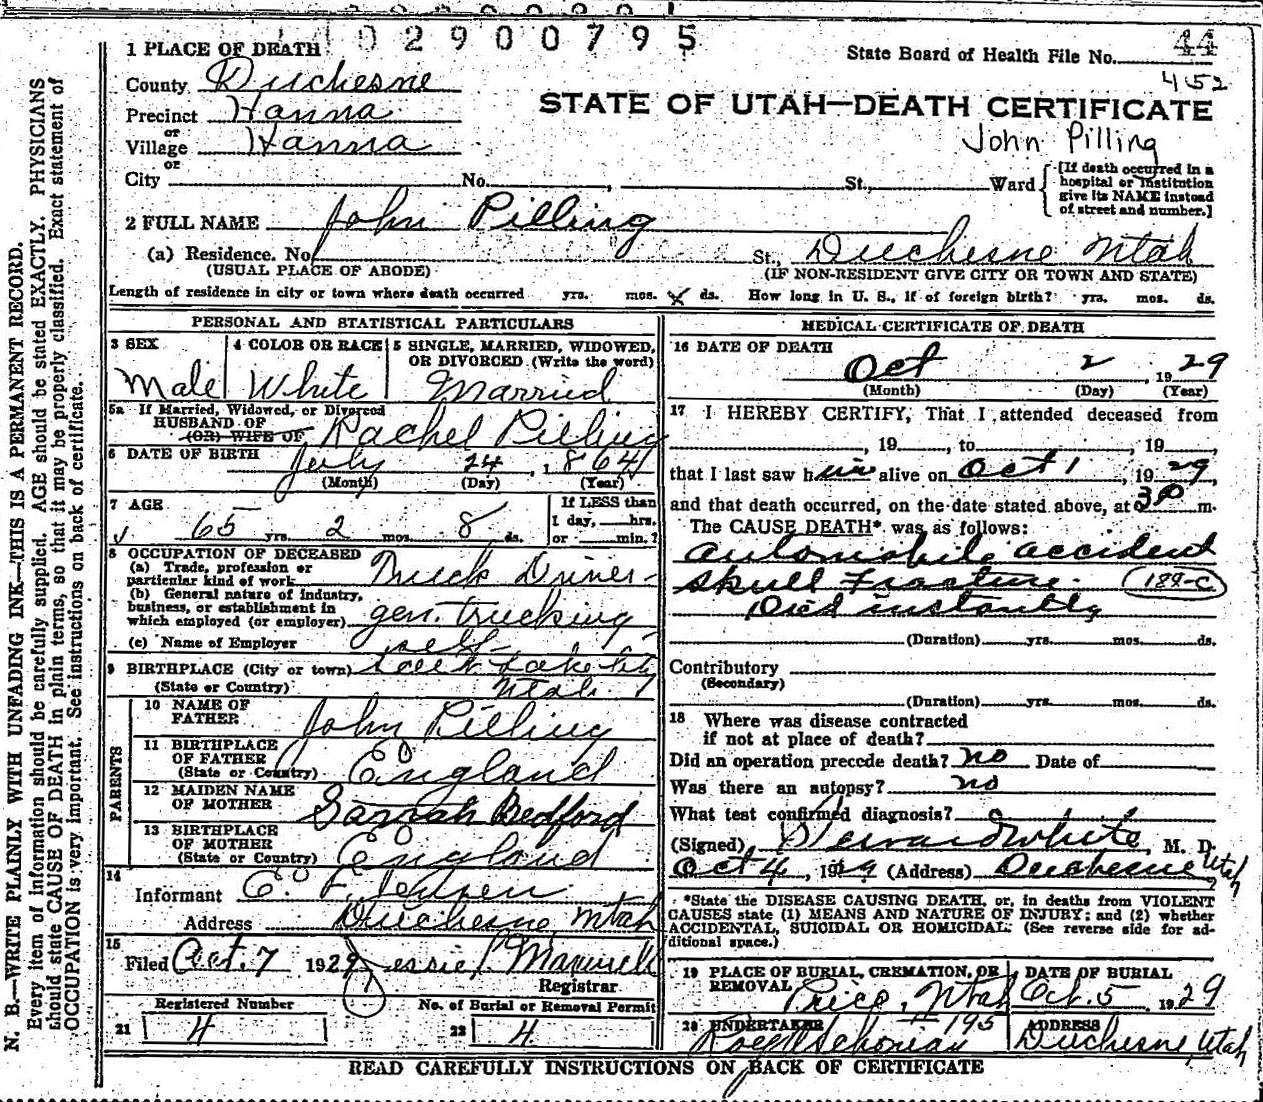 0 2 9 0 0 7 9 5
1 PLACE OF DEATH
State Board of Health File No. 44
452
County Duchesne
STATE OF UTAH—DEATH CERTIFICATE
Precinct Hanna
or
Village Hanna
or
John Pilling
City No. , St., Ward
[If death occurred in a
hospital or institution
give its NAME instead
of street and number.]
2 FULL NAME John Pilling
(a) Residence. No. St., Duchesne Utah
(USUAL PLACE OF ABODE) (IF NON-RESIDENT GIVE CITY OR TOWN AND STATE)
Length of residence in city or town where death occurred yrs. mos. X ds. How long in U. S., if of foreign birth? yrs. mos. ds.
PERSONAL AND STATISTICAL PARTICULARS
3 SEX 4 COLOR OR RACE 5 SINGLE, MARRIED, WIDOWED,
OR DIVORCED (Write the word)
Male White Married
5a If Married, Widowed, or Divorced
HUSBAND OF
(OR) WIFE OF Rachel Pilling
6 DATE OF BIRTH July 24, 1864
(Month) (Day) (Year)
7 AGE If LESS than
65 yrs. 2 mos. 8 ds. 1 day, hrs.
or min.?
8 OCCUPATION OF DECEASED
(a) Trade, profession or
particular kind of work Truck Driver
(b) General nature of industry,
business, or establishment in
which employed (or employer) gen. trucking
(c) Name of Employer self
9 BIRTHPLACE (City or town) Salt Lake City
(State or Country) Utah
PARENTS
10 NAME OF
FATHER John Pilling
11 BIRTHPLACE
OF FATHER
(State or Country) England
12 MAIDEN NAME
OF MOTHER Sarrah Bedford
13 BIRTHPLACE
OF MOTHER
(State or Country) England
14
Informant C.
Address Duchesne, Utah
15
Filed Oct. 7 1929 Jessie
Registrar
Registered Number No. of Burial or Removal Permit
21 4 22 4
MEDICAL CERTIFICATE OF DEATH
16 DATE OF DEATH
Oct 2, 1929
(Month) (Day) (Year)
17 I HEREBY CERTIFY, That I attended deceased from
, 19 , to , 19 ,
that I last saw him alive on Oct 1, 1929,
and that death occurred, on the date stated above, at 3P m.
The CAUSE DEATH* was as follows:
automobile accident
skull Fracture. 188-c
Died instantly
(Duration) yrs. mos. ds.
Contributory
(Secondary)
(Duration) yrs. mos. ds.
18 Where was disease contracted
if not at place of death?
Did an operation precede death? no Date of
Was there an autopsy? no
What test confirmed diagnosis?
(Signed) White, M. D.
Oct 4, 1929 (Address) Duchesne, Utah
*State the DISEASE CAUSING DEATH, or, in deaths from VIOLENT
CAUSES state (1) MEANS AND NATURE OF INJURY; and (2) whether
ACCIDENTAL, SUICIDAL OR HOMICIDAL. (See reverse side for ad-
ditional space.)
19 PLACE OF BURIAL, CREMATION, OR DATE OF BURIAL
REMOVAL Price, Utah Oct. 5 1929
20 UNDERTAKER 195 ADDRESS
Duchesne, Utah
READ CAREFULLY INSTRUCTIONS ON BACK OF CERTIFICATE
N. B.—WRITE PLAINLY WITH UNFADING INK—THIS IS A PERMANENT RECORD.
Every item of information should be carefully supplied. AGE should be stated EXACTLY. PHYSICIANS
should state CAUSE OF DEATH in plain terms, so that it may be properly classified. Exact statement of
OCCUPATION is very important. See instructions on back of certificate.